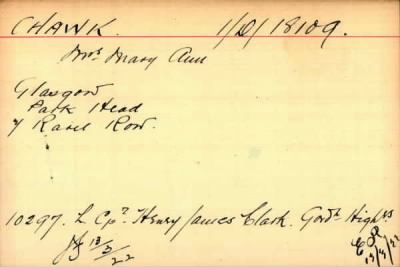 CHAWK. 1/D/18109.
Mrs Mary Ann
Glasgow
Park Head
7 Rasel Row.
10297. L Cpl. Henry James Clark. Gord. Highrs
13/3/22